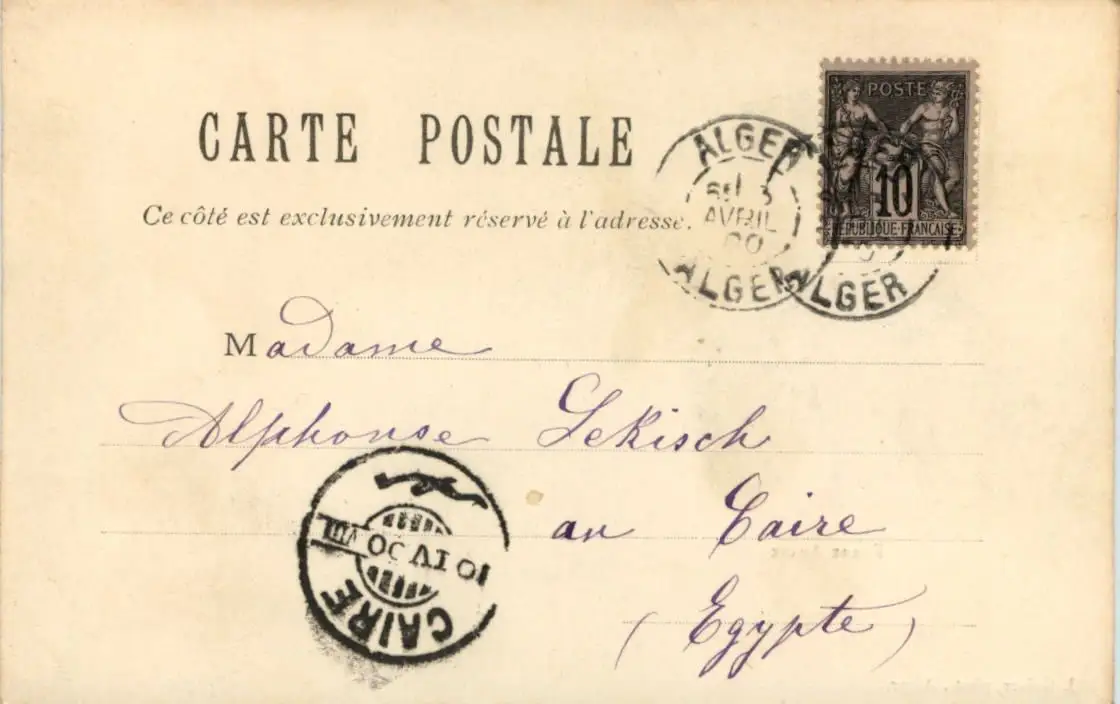 CARTE POSTALE
Ce côté est exclusivement réservé à l'adresse.
POSTE
10
REPUBLIQUE FRANÇAISE
ALGER
AVRIL
00
ALGER
ALGER
Madame
Alphonse Lekisch
au Caire
(Egypte)
CAIRE
10 IV 00 VIII